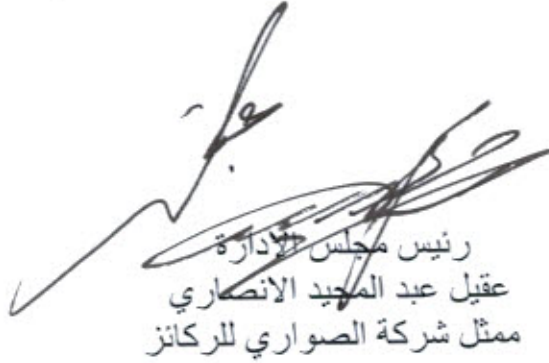 رئيس مجلس الإدارة
عقيل عبد المجيد الانصاري
ممثل شركة الصواري للركائز